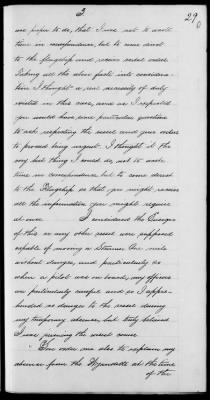 2
290
me proper to do, that I was not to waste
time in correspondence, but to come direct
to the flagship and receive verbal orders
Taking all the above facts into considera-
tion I thought a real necessity of duty
existed in this case, and as I expected
you would have some particular questions
to ask respecting the vessel and your orders
to proceed being urgent. I thought it the
very best thing I could do, not to waste
time in correspondence but to come direct
to the Flagship so that you might receive
all the information you might require
at once I considered the Ensigns
of this or any other vessel were supposed
capable of moving a Steamer one mile
without danger, and particularly so
when a pilot was on board, my officers
are particularly careful and so I appre-
hended no danger to the vessel during
my temporary absence, but truly believed
I was pursuing the wisest course
You order me also to explain my
absence from the Wyandotte at the time
of the